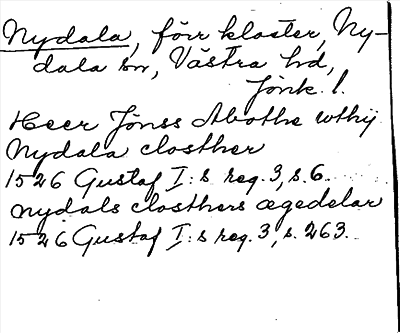 Nydala, förr kloster, Ny-
dala sn, Västra hd,
Jönk. l.
Heer Jönss Abothe wthij
Nydala closther
1526 Gustaf I:s reg. 3, s. 6.
nydals closthers ægedelar
1526 Gustaf I:s reg. 3, s. 263.